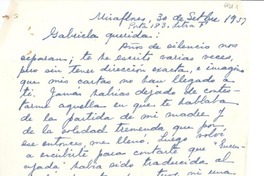 Miraflores, 30 de Setbre 1957
Gabriela querida:
Años de silencio nos
separan; te he escrito varias veces,
pero sin tener dirección exacta, e imagino
que mis cartas no han llegado a
ti. Jamás habrías dejado de contes-
tarme aquella en que te hablaba
de la partida de mi madre y de
la soledad tremenda que por
ese entonces, me llenó. Luego volví
a escribirte para contarte que
había sido traducida al